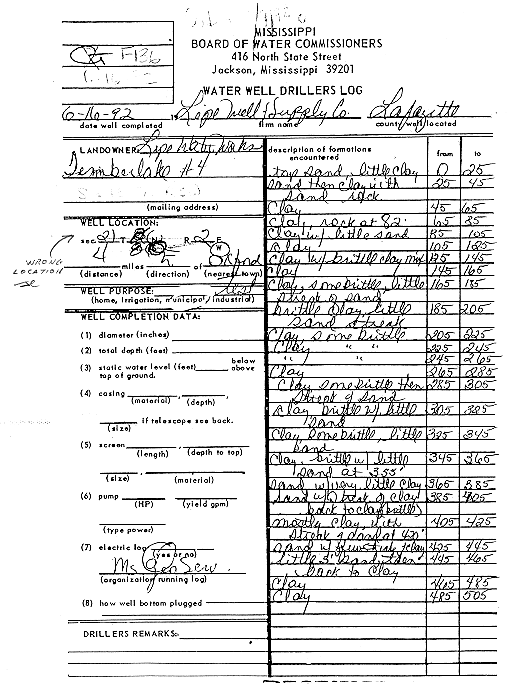 F136
MISSISSIPPI
BOARD OF WATER COMMISSIONERS
416 North State Street
Jackson, Mississippi 39201
WATER WELL DRILLERS LOG
6-16-92 Well & Supply Co. Lafayette
date well completed firm name county well located
LANDOWNER
Timberlake #4
(mailing address)
WELL LOCATION:
sec 21 T R 2 E
4 miles of
(distance) (direction) (nearest town)
WRONG
LOCATION
WELL PURPOSE: test
(home, irrigation, municipal, industrial)
WELL COMPLETION DATA:
(1) diameter (inches)
(2) total depth (feet)
(3) static water level (feet) below
above
top of ground.
(4) casing
(material) , (depth)
if telescope see back.
(size)
(5) screen
(length) (depth to top)
(size) , (material)
(6) pump
(HP) (yield gpm)
(type power)
(7) electric log (yes or no)
Ms Geo Serv.
(organization running log)
(8) how well bottom plugged
DRILLERS REMARKS:
description of formations
encountered from to
top sand, little clay 0 25
sand then clay with 25 45
sand rock
Clay 45 65
Clay, rock at 82' 65 85
Clay w/ little sand 85 105
Clay 105 125
Clay w/ brittle clay mix 125 145
Clay 145 165
Clay, some brittle, little 165 185
streak of sand
brittle clay, little 185 205
sand streak
Clay some brittle 205 225
Clay " " 225 245
" " 245 265
Clay 265 285
Clay some brittle then 285 305
streak of sand
Clay brittle w/ little 305 325
sand
Clay some brittle, little 325 345
sand
Clay, brittle w/ little 345 365
sand at 355'
sand w/ very little clay 365 385
Sand w/ of clay 385 405
back to clay (brittle)
mostly clay with 405 425
streak of sand at 420'
sand w/ clay 425 445
little 3' sand, then 445 465
back to clay
Clay 465 485
Clay 485 505